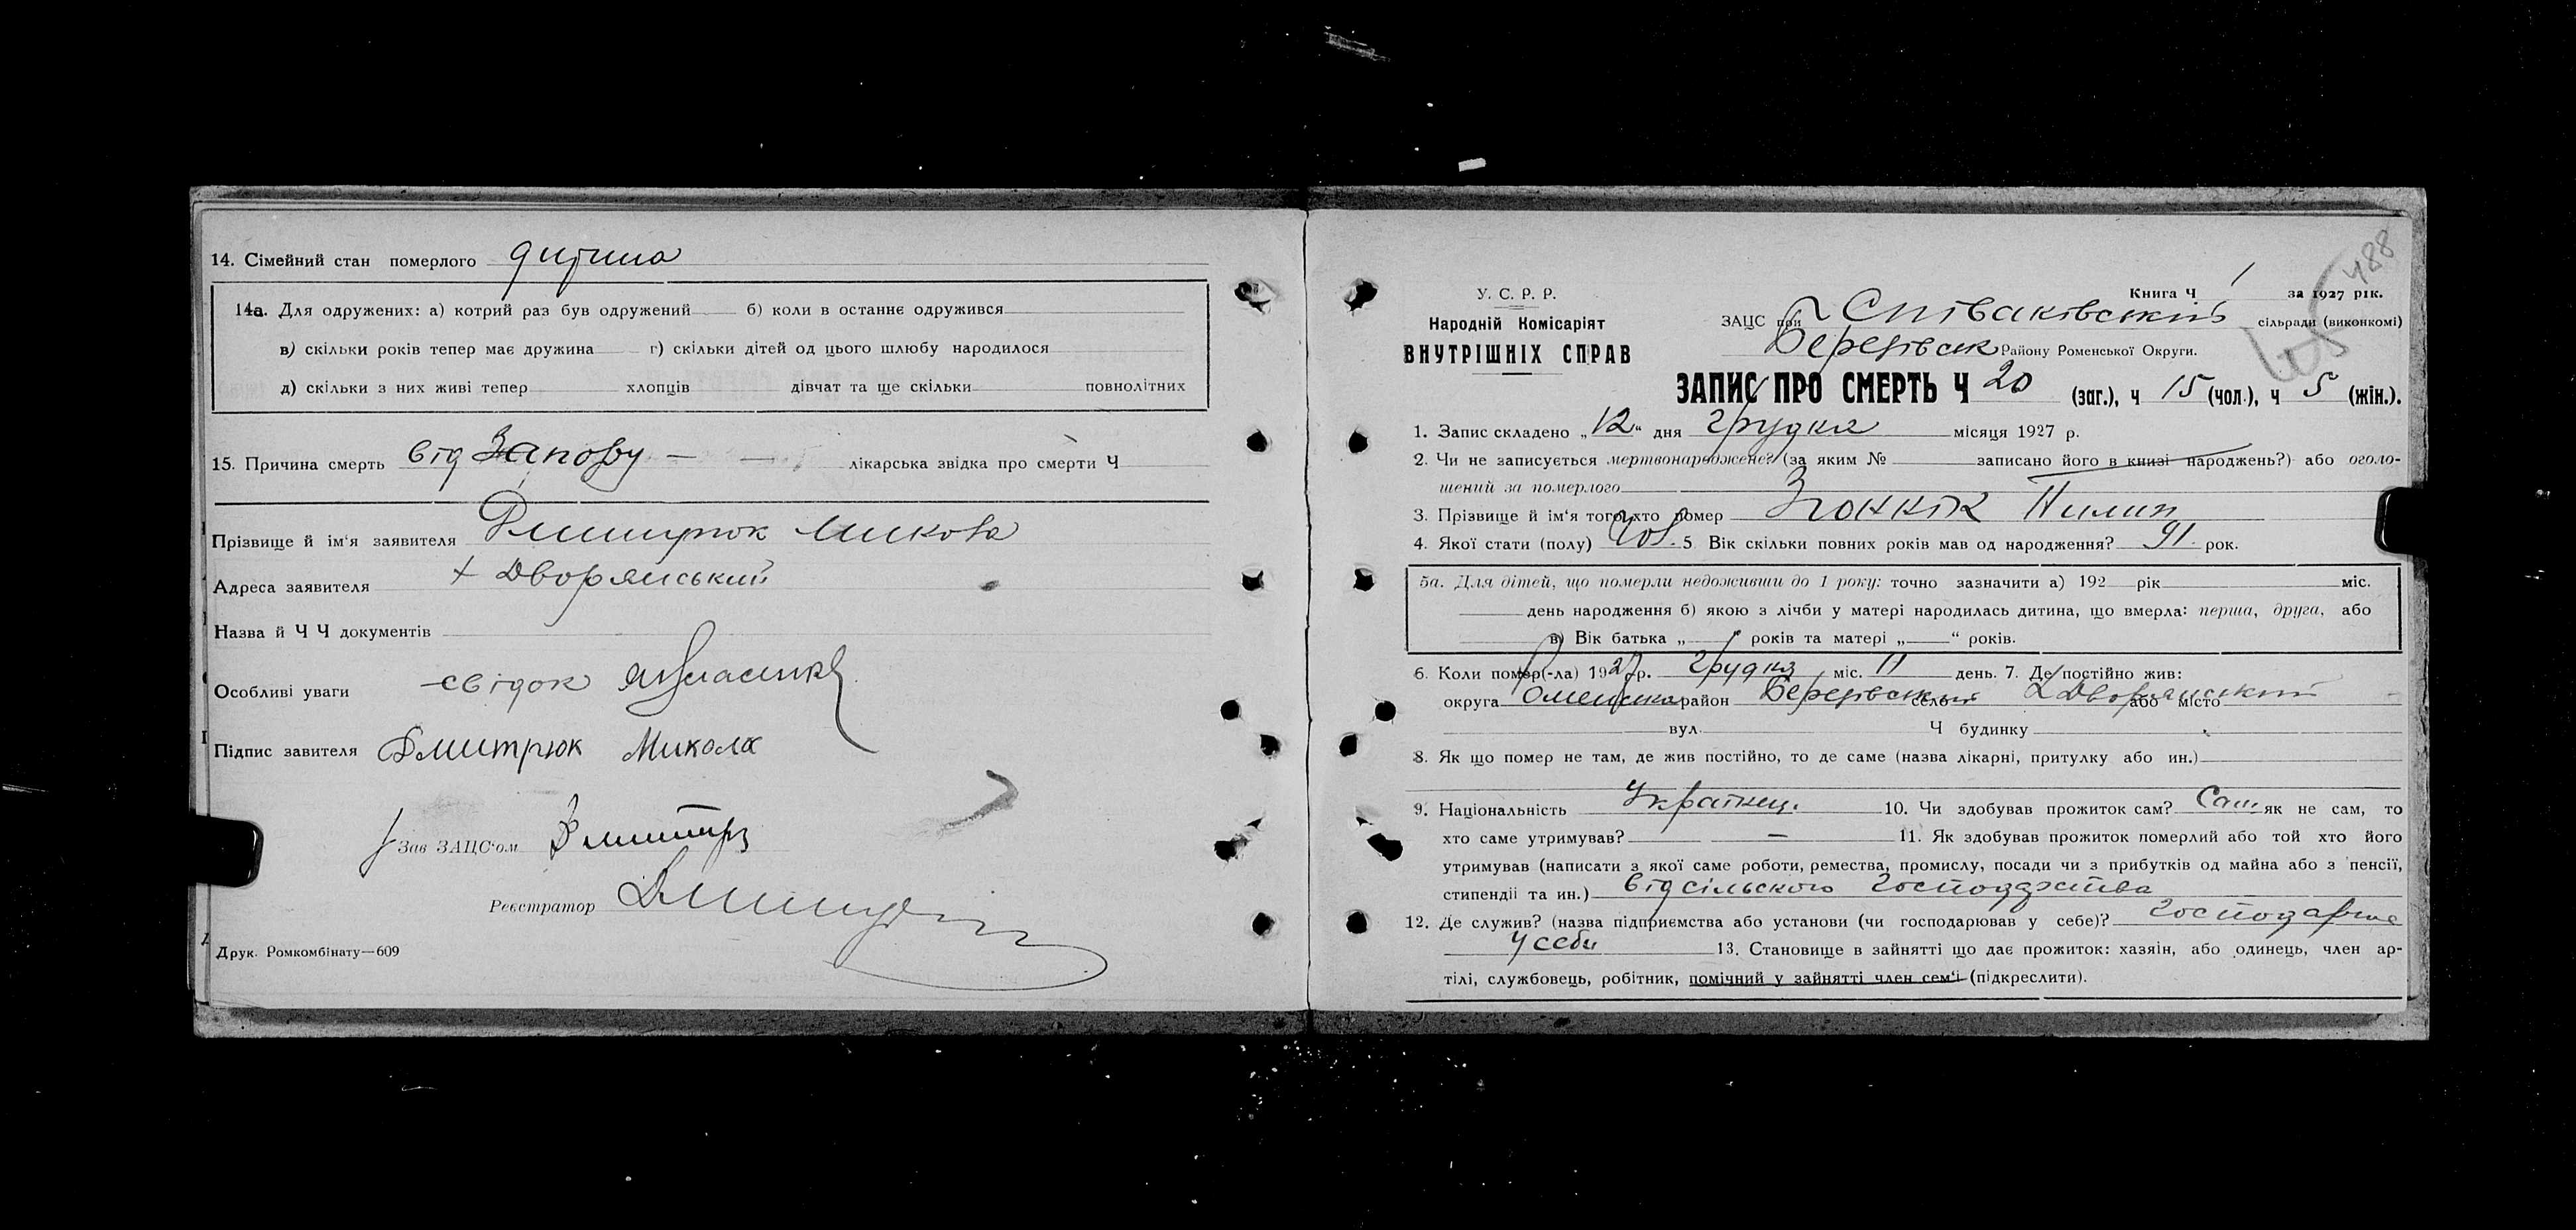 14. Сімейний стан померлого дитина
14а. Для одружених: а) котрий раз був одружений б) коли в останнє одружився
в) скільки років тепер має дружина г) скільки дітей од цього шлюбу народилося
д) скільки з них живі тепер хлопців дівчат та ще скільки повнолітних
15. Причина смерть від Запору — — лікарська звідка про смерти Ч
Прізвище й ім'я заявителя Дмитрюк Микола
Адреса заявителя х Дворянський
Назва й Ч Ч документів
Особливі уваги —свідок
Підпис завителя Дмитрюк Микола
Зав ЗАЦС'ом
Реєстратор
Друк. Ромкомбінату—609
488
У. С. Р. Р.
Народній Комісаріят
ВНУТРІШНІХ СПРАВ
Книга Ч 1 за 1927 рік.
ЗАЦС при Співаківській сільради (виконкомі)
Березівськ Району Роменської Округи.
ЗАПИС ПРО СМЕРТЬ Ч 20 (заг.), ч 15 (чол.), ч 5 (жін.).
1. Запис складено „12“ дня грудня місяця 1927 р.
2. Чи не записується мертвонароджене? (за яким № записано його в книзі народжень?) або оголо-
шений за померлого
3. Прізвище й ім'я того, хто помер Пилип
4. Якої стати (полу) Чол. 5 Вік скільки повних років мав од народження? 91 рок.
5а. Для дітей, що померли недоживши до 1 року: точно зазначити а) 192 рік міс.
день народження б) якою з лічби у матері народилась дитина, що вмерла: перша, друга, або
в) Вік батька „ “ років та матері „ “ років.
6. Коли помер(-ла) 1927 р. грудня міс. 11 день. 7. Де постійно жив:
округа Роменська район Березівський село х Дворянський або місто
вул. Ч будинку
8. Як що помер не там, де жив постійно, то де саме (назва лікарні, притулку або ин.)
9. Національність Українець. 10. Чи здобував прожиток сам? Сам як не сам, то
хто саме утримував? — 11. Як здобував прожиток померлий або той хто його
утримував (написати з якої саме роботи, ремества, промислу, посади чи з прибутків од майна або з пенсії,
стипендії та ин.) від сільського господарства
12. Де служив? (назва підприємства або установи (чи господарював у себе)?
у себи 13. Становище в зайнятті що дає прожиток: хазяїн, або одинець, член ар-
тілі, службовець, робітник, помічний у зайнятті член сем'ї (підкреслити).